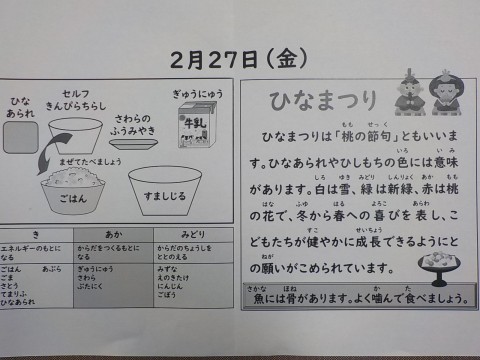 2月27日(金)
ひな
あられ
セルフ
きんぴらちらし
さわらの
ふうみやき
ぎゅうにゅう
牛乳
まぜてたべましょう
ごはん
すましじる
き
あか
みどり
エネルギーのもとに
なる
からだをつくるもとに
なる
からだのちょうしを
ととのえる
ごはん あぶら
ごま
さとう
てまりふ
ひなあられ
ぎゅうにゅう
さわら
ぶたにく
みずな
えのきたけ
にんじん
ごぼう
ひなまつり
もも せっく
ひなまつりは「桃の節句」ともいいま
いろ いみ
す。ひなあられやひしもちの色には意味
しろ ゆき みどり しんりょく あか もも
があります。白は雪、緑は新緑、赤は桃
はな ふゆ はる よろこ あらわ
の花で、冬から春への喜びを表し、こ
すこ せいちょう
どもたちが健やかに成長できるようにと
ねが
の願いがこめられています。
さかな ほね か た
魚には骨があります。よく噛んで食べましょう。